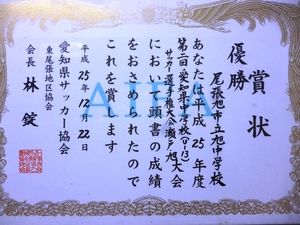 賞状
優勝
尾張旭市立旭中学校
あなたは平成25年度
第二回愛知県中学校(U-13)
サッカー選手権大会瀬戸・旭大会
において頭書の成績
をおさめられたので
これを賞します
平成25年12月22日
愛知県サッカー協会
東尾張地区協会
会長 林 錠
AIFA